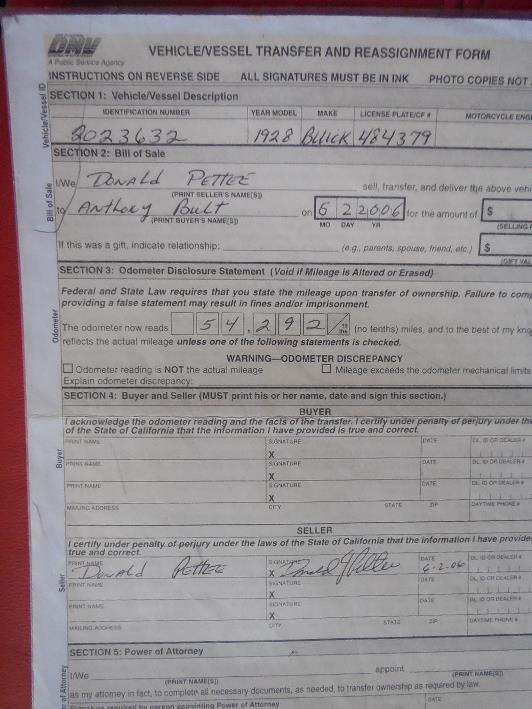 DMV
A Public Service Agency
VEHICLE/VESSEL TRANSFER AND REASSIGNMENT FORM
INSTRUCTIONS ON REVERSE SIDE ALL SIGNATURES MUST BE IN INK PHOTO COPIES NOT
Vehicle/Vessel ID
SECTION 1: Vehicle/Vessel Description
IDENTIFICATION NUMBER YEAR MODEL MAKE LICENSE PLATE/CF # MOTORCYCLE ENG
2023632 1928 BUICK 484379
Bill of Sale
SECTION 2: Bill of Sale
I/We DONALD PETTEE sell, transfer, and deliver the above vehi
(PRINT SELLER'S NAME[S])
to Anthony Bult on 6 2 2006 for the amount of $
(PRINT BUYER'S NAME[S]) MO DAY YR (SELLING
If this was a gift, indicate relationship: (e.g., parents, spouse, friend, etc.) $
(GIFT VAL
Odometer
SECTION 3: Odometer Disclosure Statement (Void if Mileage is Altered or Erased)
Federal and State Law requires that you state the mileage upon transfer of ownership. Failure to com
providing a false statement may result in fines and/or imprisonment.
The odometer now reads 54,292 (no tenths) miles, and to the best of my kno
reflects the actual mileage unless one of the following statements is checked.
WARNING—ODOMETER DISCREPANCY
Odometer reading is NOT the actual mileage Mileage exceeds the odometer mechanical limits
Explain odometer discrepancy:
SECTION 4: Buyer and Seller (MUST print his or her name, date and sign this section.)
BUYER
I acknowledge the odometer reading and the facts of the transfer. I certify under penalty of perjury under the
of the State of California that the information I have provided is true and correct.
Buyer
PRINT NAME SIGNATURE DATE DL, ID OR DEALER #
X
PRINT NAME SIGNATURE DATE DL, ID OR DEALER #
X
PRINT NAME SIGNATURE DATE DL, ID OR DEALER #
X
MAILING ADDRESS CITY STATE ZIP DAYTIME PHONE #
SELLER
I certify under penalty of perjury under the laws of the State of California that the information I have provide
true and correct.
Seller
PRINT NAME SIGNATURE DATE DL, ID OR DEALER #
DONALD PETTEE X 6-2-06
PRINT NAME SIGNATURE DATE DL, ID OR DEALER #
X
PRINT NAME SIGNATURE DATE DL, ID OR DEALER #
X
MAILING ADDRESS CITY STATE ZIP DAYTIME PHONE #
of Attorney
SECTION 5: Power of Attorney
I/We appoint
(PRINT NAME[S]) (PRINT NAME[S])
as my attorney in fact, to complete all necessary documents, as needed, to transfer ownership as required by law.
Signature required by person appointing Power of Attorney DATE